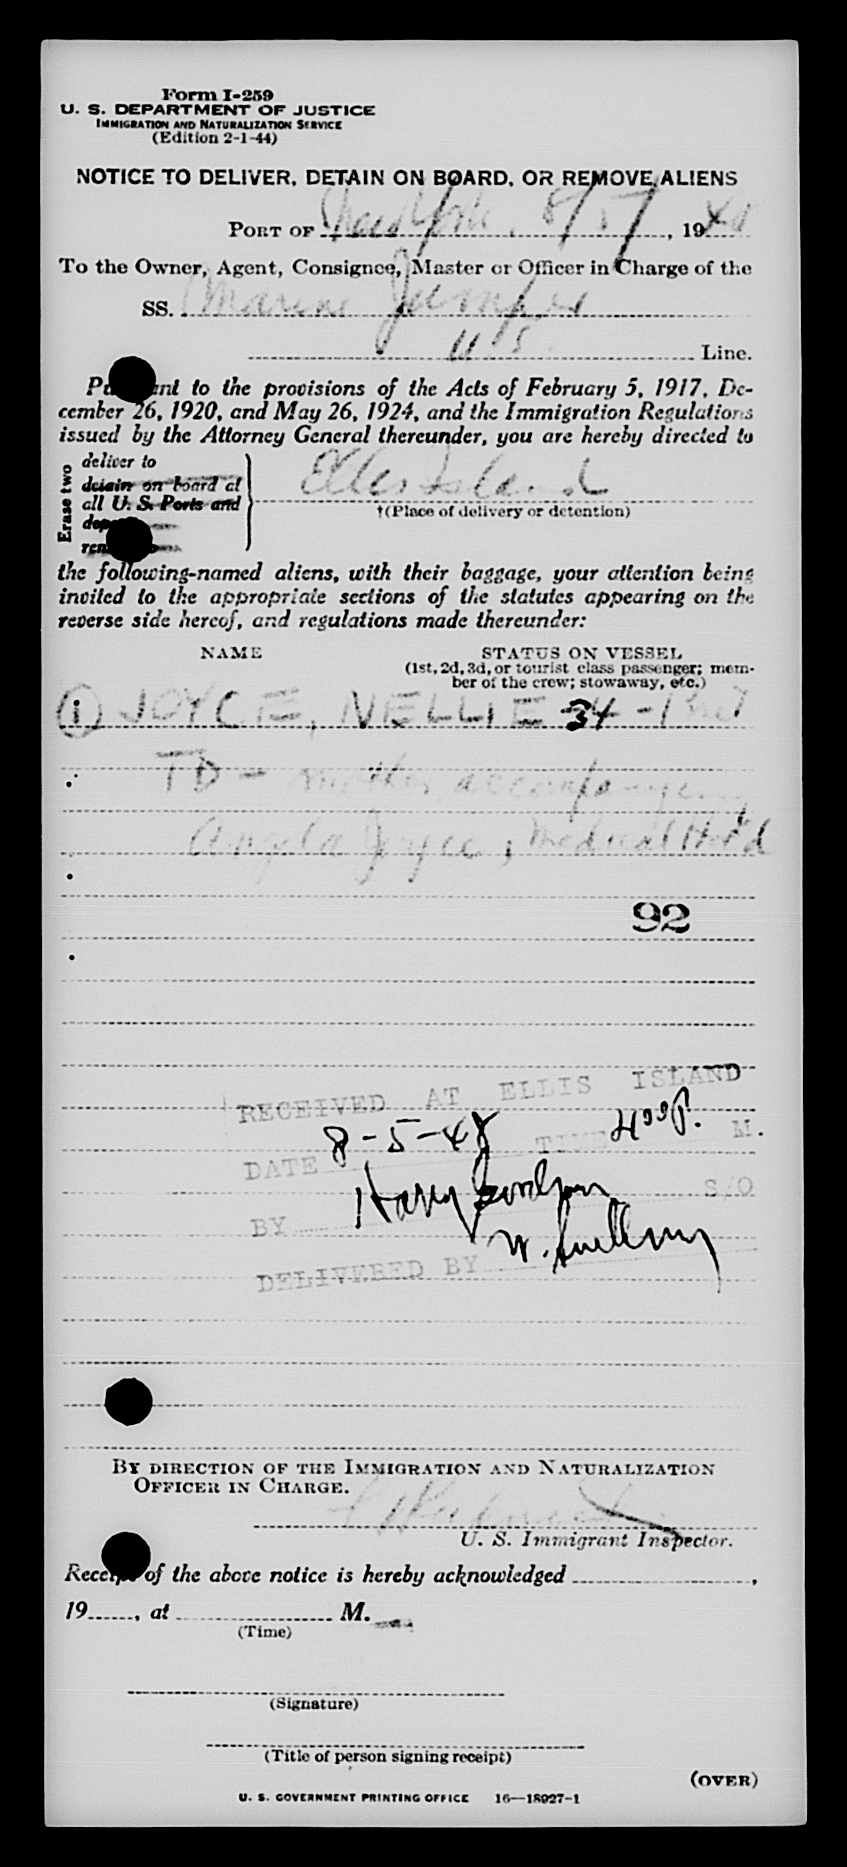 Form I-259
U. S. DEPARTMENT OF JUSTICE
IMMIGRATION AND NATURALIZATION SERVICE
(Edition 2-1-44)
NOTICE TO DELIVER, DETAIN ON BOARD, OR REMOVE ALIENS
PORT OF New York, 8/5/, 1948
To the Owner, Agent, Consignee, Master or Officer in Charge of the
SS. Marine Jumper
U.S. Line.
Pursuant to the provisions of the Acts of February 5, 1917, De-
cember 26, 1920, and May 26, 1924, and the Immigration Regulations
issued by the Attorney General thereunder, you are hereby directed to
Erase two
deliver to
detain on board at
all U. S. Ports and
Ellis Island
†(Place of delivery or detention)
the following-named aliens, with their baggage, your attention being
invited to the appropriate sections of the statutes appearing on the
reverse side hereof, and regulations made thereunder:
NAME STATUS ON VESSEL
(1st, 2d, 3d, or tourist class passenger; mem-
ber of the crew; stowaway, etc.)
1 JOYCE, NELLIE 34 -
TD - mother accompanying
Angela Joyce, Medical Hold
92
RECEIVED AT ELLIS ISLAND
DATE 8-5-48 TIME 4 00 P. M.
BY Harry S/O
DELIVERED BY
BY DIRECTION OF THE IMMIGRATION AND NATURALIZATION
OFFICER IN CHARGE.
U. S. Immigrant Inspector.
Receipt of the above notice is hereby acknowledged ,
19 , at M.
(Time)
(Signature)
(Title of person signing receipt)
(OVER)
U. S. GOVERNMENT PRINTING OFFICE 16—18927-1